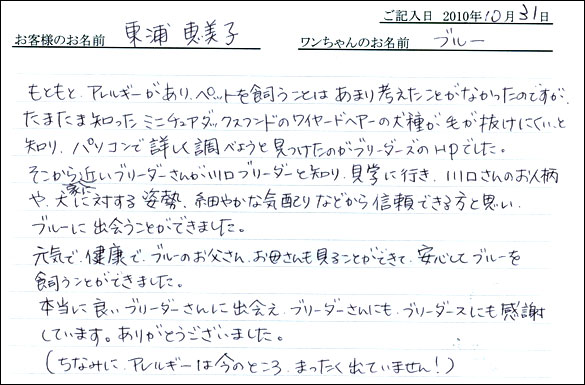 ご記入日 2010年10月31日
お客様のお名前 東浦 恵美子 ワンちゃんのお名前 ブルー
もともと、アレルギーがあり、ペットを飼うことは あまり考えたことがなかったのですが、
たまたま知った ミニチュアダックスフンドのワイヤードヘアーの犬種が毛が抜けにくいと
知り、パソコンで詳しく調べようと見つけたのがブリーダーズのHPでした。
そこから近いブリーダーさんが川口ブリーダーと知り、見学に行き、川口さんのお人柄
や、犬に対する姿勢、細やかな気配りなどから信頼できる方と思い、
ブルーに出会うことができました。
元気で、健康で、ブルーのお父さん、お母さんも見ることができて、安心してブルーを
飼うことができました。
本当に良いブリーダーさんに出会え、ブリーダーさんにも、ブリーダーズにも感謝
しています。ありがとうございました。
(ちなみに、アレルギーは今のところ、まったく出ていません!)